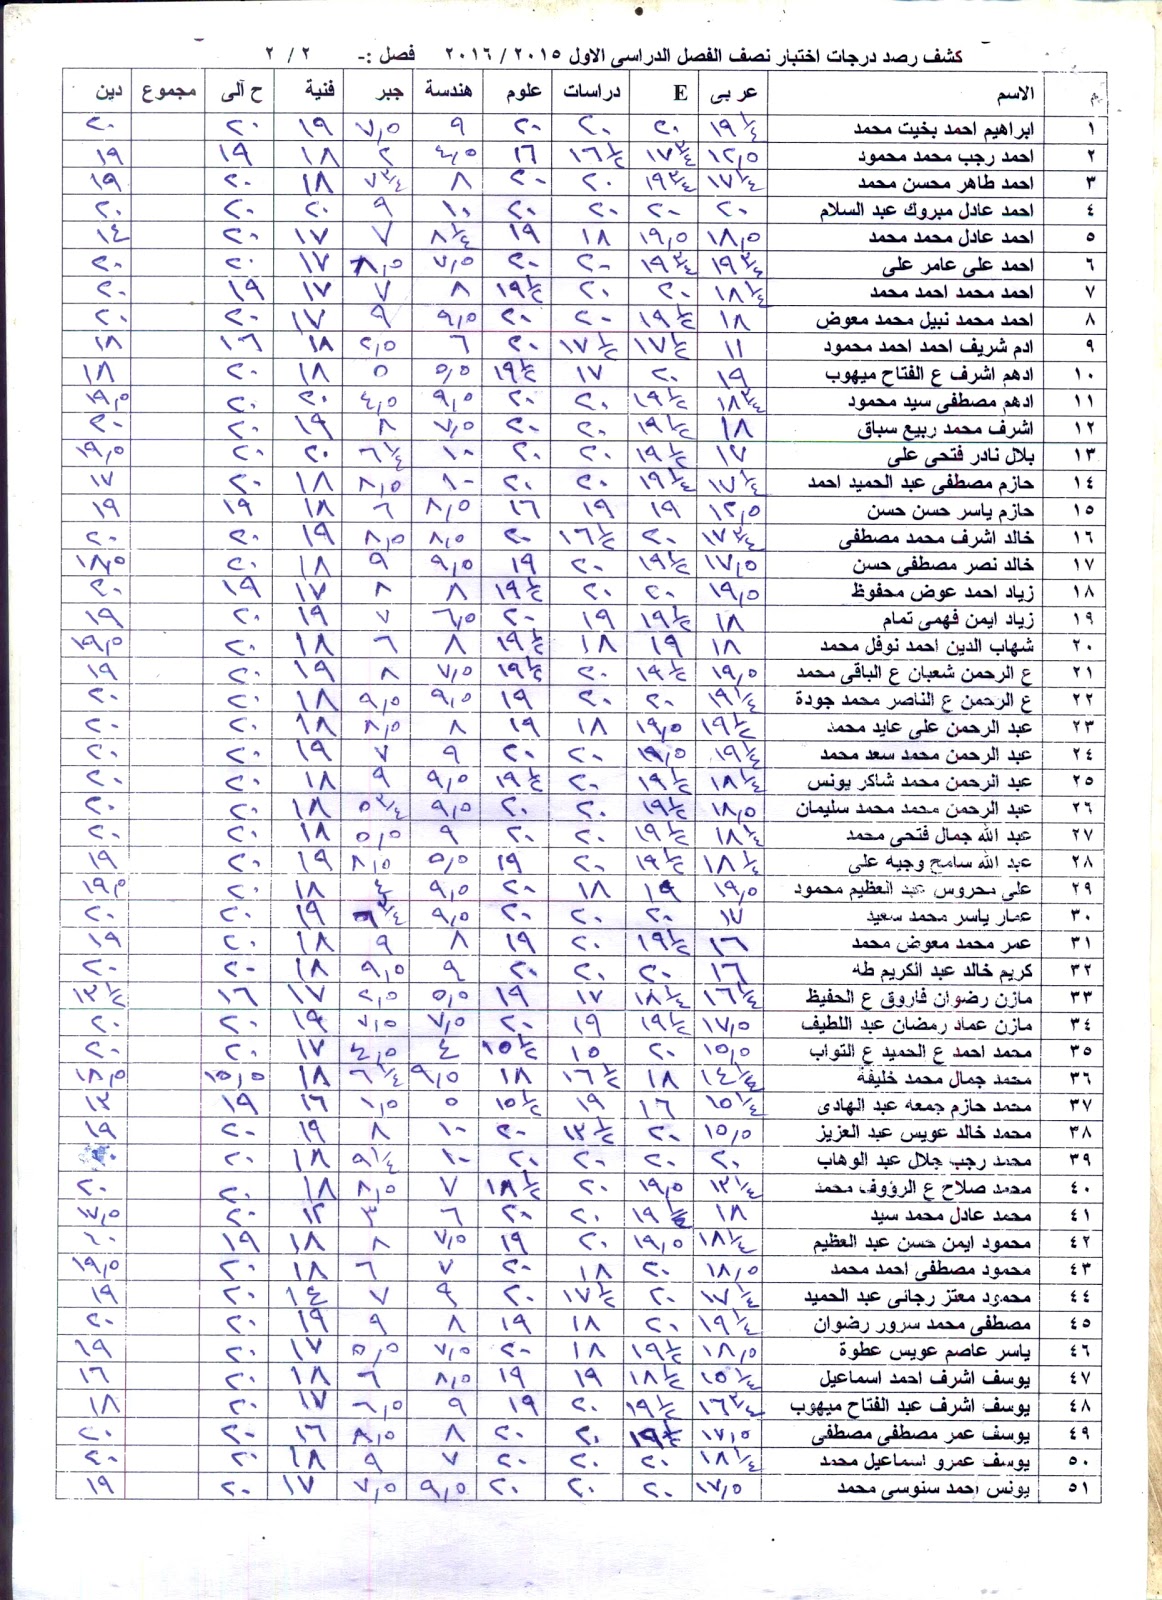 كشف رصد درجات اختبار نصف الفصل الدراسى الاول ٢٠١٥ / ٢٠١٦ فصل :- ٢ / ٢
م الاسم عربى E دراسات علوم هندسة جبر فنية ح آلى مجموع دين
١ ابراهيم احمد بخيت محمد ١٩¼ ٢٠ ٢٠ ٢٠ ٩ ٧,٥ ١٩ ٢٠ ٢٠
٢ احمد رجب محمد محمود ١٢,٥ ١٧¾ ١٦½ ١٦ ٤,٥ ٢ ١٨ ١٩ ١٩
٣ احمد طاهر محسن محمد ١٧¼ ١٩¾ ٢٠ ٢٠ ٨ ٧¾ ١٨ ٢٠ ١٩
٤ احمد عادل مبروك عبد السلام ٢٠ ٢٠ ٢٠ ٢٠ ١٠ ٩ ٢٠ ٢٠ ٢٠
٥ احمد عادل محمد محمد ١٨,٥ ١٩,٥ ١٨ ١٩ ٨¼ ٧ ١٧ ٢٠ ١٤
٦ احمد على عامر على ١٩¾ ١٩¾ ٢٠ ٢٠ ٧,٥ ٨,٥ ١٧ ٢٠ ٢٠
٧ احمد محمد احمد محمد ١٨¼ ٢٠ ٢٠ ١٩½ ٨ ٧ ١٧ ١٩ ٢٠
٨ احمد محمد نبيل محمد معوض ١٨ ١٩½ ٢٠ ٢٠ ٩,٥ ٩ ١٧ ٢٠ ٢٠
٩ ادم شريف احمد احمد محمود ١١ ١٧½ ١٧½ ٢٠ ٦ ٢,٥ ١٨ ١٦ ١٨
١٠ ادهم اشرف ع الفتاح ميهوب ١٩ ٢٠ ١٧ ١٩½ ٥,٥ ٥ ١٨ ٢٠ ١٨
١١ ادهم مصطفى سيد محمود ١٨¾ ١٩½ ٢٠ ٢٠ ٩,٥ ٤,٥ ٢٠ ٢٠ ١٩,٥
١٢ اشرف محمد ربيع سباق ١٨ ١٩½ ٢٠ ٢٠ ٧,٥ ٨ ١٩ ٢٠ ٢٠
١٣ بلال نادر فتحى على ١٧ ١٩½ ٢٠ ٢٠ ١٠ ٦¼ ٢٠ ٢٠ ١٩,٥
١٤ حازم مصطفى عبد الحميد احمد ١٧¼ ١٩¼ ٢٠ ٢٠ ١٠ ٨,٥ ١٨ ٢٠ ١٧
١٥ حازم ياسر حسن حسن ١٢,٥ ١٩ ١٩ ١٦ ٨,٥ ٦ ١٨ ١٩ ١٩
١٦ خالد اشرف محمد مصطفى ١٧¾ ٢٠ ١٦½ ٢٠ ٨,٥ ٨,٥ ١٩ ٢٠ ٢٠
١٧ خالد نصر مصطفى حسن ١٧,٥ ١٩½ ٢٠ ١٩ ٩,٥ ٩ ١٨ ٢٠ ١٨,٥
١٨ زياد احمد عوض محفوظ ١٩,٥ ٢٠ ٢٠ ١٩½ ٨ ٨ ١٧ ١٩ ٢٠
١٩ زياد ايمن فهمى تمام ١٨ ١٩½ ١٩ ٢٠ ٦,٥ ٧ ١٩ ٢٠ ١٩
٢٠ شهاب الدين احمد نوفل محمد ١٨ ١٩ ١٨ ١٩½ ٨ ٦ ١٨ ٢٠ ١٩,٥
٢١ ع الرحمن شعبان ع الباقى محمد ١٩,٥ ١٩½ ٢٠ ١٩½ ٧,٥ ٨ ١٩ ٢٠ ١٩
٢٢ ع الرحمن ع الناصر محمد جودة ١٩¼ ٢٠ ٢٠ ١٩ ٩,٥ ٩,٥ ١٨ ٢٠ ٢٠
٢٣ عبد الرحمن على عايد محمد ١٩½ ١٩,٥ ١٨ ١٩ ٨ ٨,٥ ١٨ ٢٠ ٢٠
٢٤ عبد الرحمن محمد سعد محمد ١٩¼ ١٩,٥ ٢٠ ٢٠ ٩ ٧ ١٩ ٢٠ ٢٠
٢٥ عبد الرحمن محمد شاكر يونس ١٨¼ ١٩½ ٢٠ ١٩½ ٩,٥ ٩ ١٨ ٢٠ ٢٠
٢٦ عبد الرحمن محمد محمد سليمان ١٨,٥ ١٩½ ٢٠ ٢٠ ٩,٥ ٥¾ ١٨ ٢٠ ٢٠
٢٧ عبد الله جمال فتحى محمد ١٨¼ ١٩½ ٢٠ ٢٠ ٩ ٥,٥ ١٨ ٢٠ ٢٠
٢٨ عبد الله سامح وجيه على ١٨¼ ١٩½ ٢٠ ١٩ ٥,٥ ٨,٥ ١٩ ٢٠ ١٩
٢٩ على محروس عبد العظيم محمود ١٩,٥ ١٩ ١٨ ٢٠ ٩,٥ ٤ ١٨ ٢٠ ١٩,٥
٣٠ عمار ياسر محمد سعيد ١٧ ٢٠ ٢٠ ٢٠ ٩,٥ ١٩ ٢٠ ٢٠
٣١ عمر محمد معوض محمد ١٦ ١٩½ ٢٠ ١٩ ٨ ٩ ١٨ ٢٠ ١٩
٣٢ كريم خالد عبد الكريم طه ١٦ ٢٠ ٢٠ ٢٠ ٩ ٩,٥ ١٨ ٢٠ ٢٠
٣٣ مازن رضوان فاروق ع الحفيظ ١٦¼ ١٨¼ ١٧ ١٩ ٥,٥ ٢,٥ ١٧ ١٦ ١٣½
٣٤ مازن عماد رمضان عبد اللطيف ١٧,٥ ١٩½ ١٩ ٢٠ ٧,٥ ٧,٥ ١٩ ٢٠ ٢٠
٣٥ محمد احمد ع الحميد ع التواب ١٥,٥ ٢٠ ١٥ ١٥½ ٤ ٤,٥ ١٧ ٢٠ ٢٠
٣٦ محمد جمال محمد خليفة ١٤¼ ١٨ ١٦½ ١٨ ٩,٥ ٦¼ ١٨ ١٥,٥ ١٨,٥
٣٧ محمد حازم جمعه عبد الهادى ١٥¼ ١٦ ١٩ ١٥½ ٥ ١,٥ ١٦ ١٩ ١٣
٣٨ محمد خالد عويس عبد العزيز ١٥,٥ ٢٠ ١٣½ ٢٠ ١٠ ٨ ١٩ ٢٠ ١٩
٣٩ محمد رجب جلال عبد الوهاب ٢٠ ٢٠ ٢٠ ٢٠ ١٠ ٩¼ ١٨ ٢٠
٤٠ محمد صلاح ع الرؤوف محمد ١٣¼ ١٩,٥ ٢٠ ١٨½ ٧ ٨,٥ ١٨ ٢٠ ٢٠
٤١ محمد عادل محمد سيد ١٨ ١٩½ ٢٠ ٢٠ ٦ ٣ ١٢ ٢٠ ١٧,٥
٤٢ محمود ايمن حسن عبد العظيم ١٨¼ ١٩,٥ ٢٠ ١٩ ٧,٥ ٨ ١٨ ١٩ ٢٠
٤٣ محمود مصطفى احمد محمد ١٨,٥ ٢٠ ١٨ ٢٠ ٧ ٦ ١٨ ٢٠ ١٩,٥
٤٤ محمود معتز رجائى عبد الحميد ١٧¼ ٢٠ ١٧½ ٢٠ ٩ ٧ ١٤ ٢٠ ١٩
٤٥ مصطفى محمد سرور رضوان ١٩¼ ٢٠ ١٨ ١٩ ٨ ٩ ١٩ ٢٠ ٢٠
٤٦ ياسر عاصم عويس عطوة ١٨,٥ ١٩½ ١٨ ٢٠ ٧,٥ ٥,٥ ١٧ ٢٠ ١٩
٤٧ يوسف اشرف احمد اسماعيل ١٥¼ ١٨½ ١٩ ١٩ ٨,٥ ٦ ١٨ ٢٠ ١٦
٤٨ يوسف اشرف عبد الفتاح ميهوب ١٦¾ ١٩½ ٢٠ ١٩ ٩ ٦,٥ ١٧ ٢٠ ١٨
٤٩ يوسف عمر مصطفى مصطفى ١٧,٥ ١٩½ ٢٠ ٢٠ ٨ ٨,٥ ١٦ ٢٠ ٢٠
٥٠ يوسف عمرو اسماعيل محمد ١٨¼ ٢٠ ٢٠ ٢٠ ٧ ٩ ١٨ ٢٠ ٢٠
٥١ يونس احمد سنوسى محمد ١٧,٥ ٢٠ ٢٠ ٢٠ ٩,٥ ٧,٥ ١٧ ٢٠ ١٩